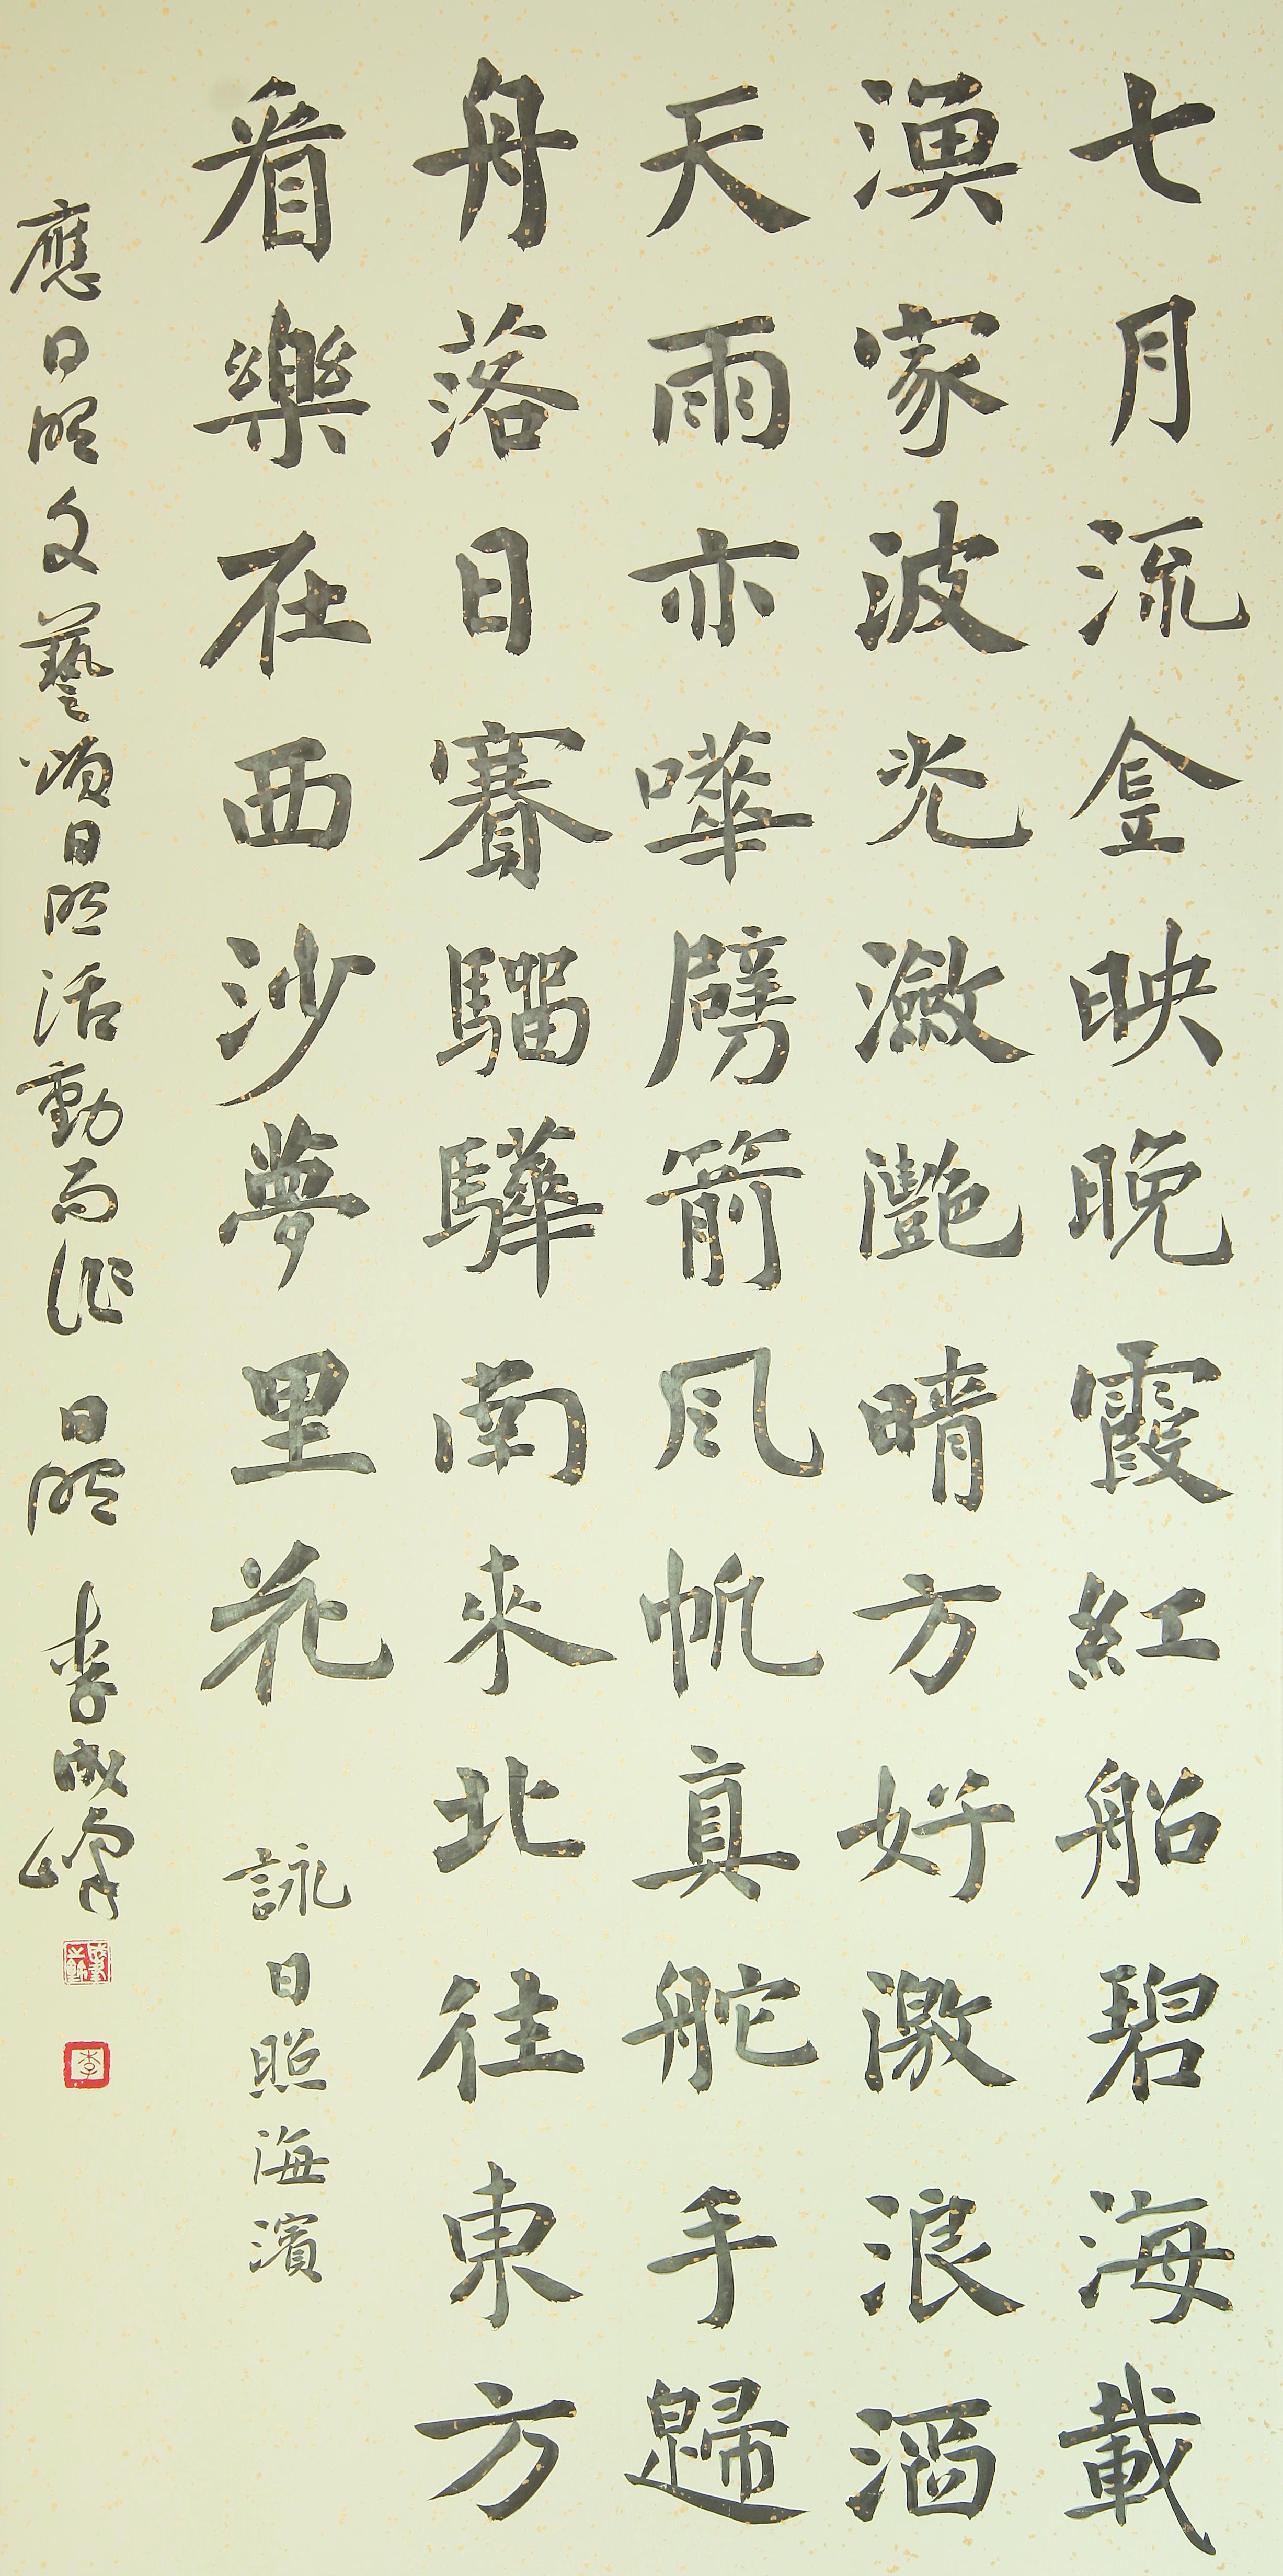 七月流金映晚霞紅船碧海載
漁家波光瀲灧晴方好激浪滔
天雨亦嘩劈箭風帆真舵手歸
舟落日賽騮驊南來北往東方
看樂在西沙夢里花 詠日照海濱
應日照文藝頌日照活動而作 日照 李成峰
李